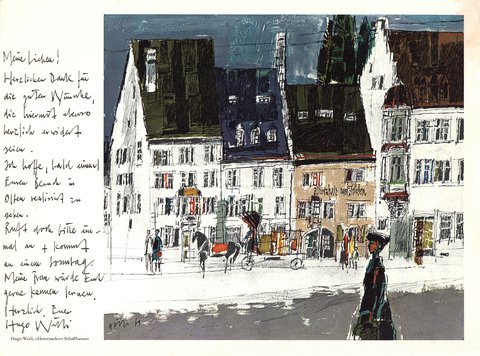 Meine Lieben!
Herzlichen Dank für
die guten Wünsche,
die hiermit ebenso
herzlich erwidert
seien.
Ich hoffe, bald einmal
Euren Besuch in
Olten realisiert zu
sehen.
Ruft doch bitte ein-
mal an + kommt
an einem Sonntag.
Meine Frau würde Euch
gerne kennen lernen.
Herzlich, Euer
Hugo Wetli
Hugo Wetli, «Herrenacker» Schaffhausen